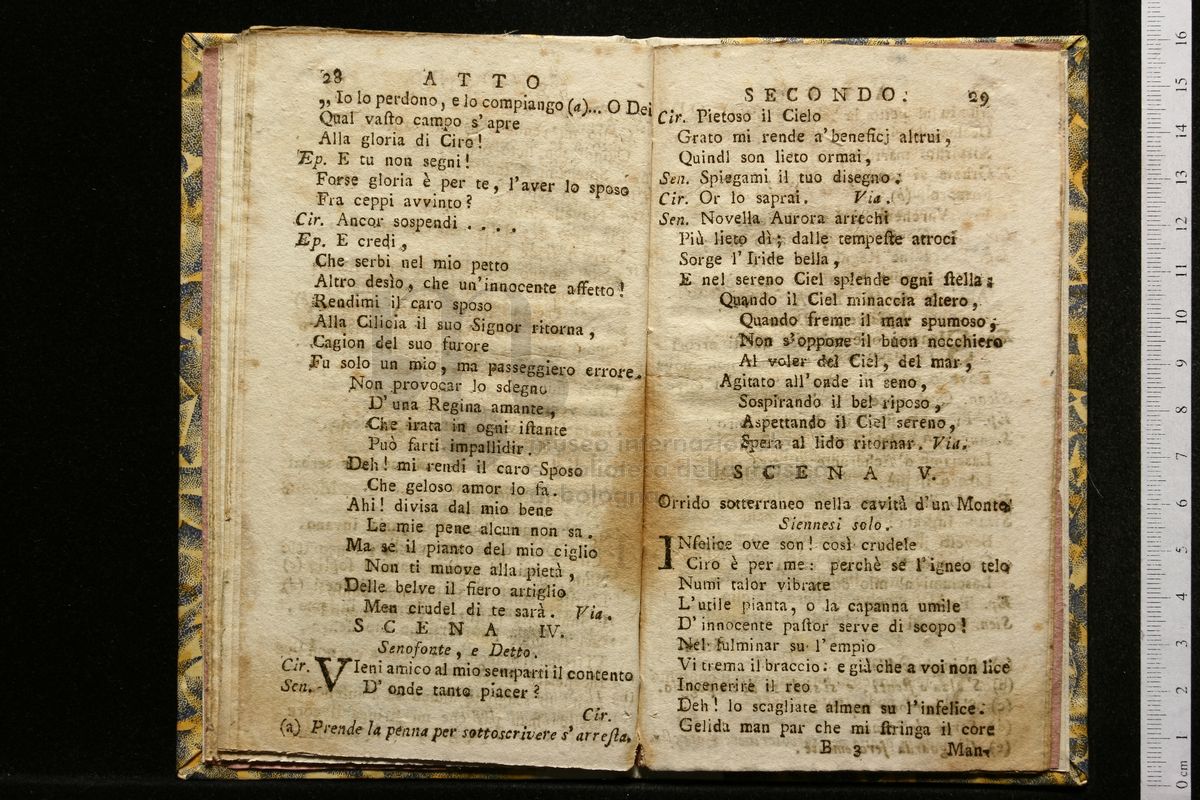 28 ATTO
„ Io lo perdono, e lo compiango (a)... O Dei
Qual vasto campo s' apre
Alla gloria di Ciro!
Ep. E tu non segni!
Forse gloria è per te, l'aver lo sposo
Fra ceppi avvinto?
Cir. Ancor sospendi . . . .
Ep. E credi,
Che serbi nel mio petto
Altro desìo, che un'innocente affetto!
Rendimi il caro sposo
Alla Cilicia il suo Signor ritorna,
Cagion del suo furore
Fu solo un mio, ma passeggiero errore.
Non provocar lo sdegno
D' una Regina amante,
Che irata in ogni istante
Può farti impallidir.
Deh! mi rendi il caro Sposo
Che geloso amor lo fa.
Ahi! divisa dal mio bene
Le mie pene alcun non sa.
Ma se il pianto del mio ciglio
Non ti muove alla pietà,
Delle belve il fiero artiglio
Men crudel di te sarà. Via.
SCENA IV.
Senofonte, e Detto.
Cir. VIeni amico al mio sen:parti il contento
Sen. D' onde tanto piacer?
Cir.
(a) Prende la penna per sottoscrivere s' arresta.
SECONDO. 29
Cir. Pietoso il Cielo
Grato mi rende a' beneficj altrui,
Quindi son lieto ormai,
Sen. Spiegami il tuo disegno:
Cir. Or lo saprai. Via.
Sen. Novella Aurora arrechi
Più lieto dì; dalle tempeste atroci
Sorge l' Iride bella,
E nel sereno Ciel splende ogni stella;
Quando il Ciel minaccia altero,
Quando freme il mar spumoso;
Non s'oppone il buon nocchiero
Al voler del Ciel, del mar,
Agitato all'onde in seno,
Sospirando il bel riposo,
Aspettando il Ciel sereno,
Spera al lido ritornar. Via.
SCENA V.
Orrido sotterraneo nella cavità d'un Monte.
Siennesi solo.
INfelice ove son! così crudele
Ciro è per me: perchè se l'igneo telo
Numi talor vibrate
L'utile pianta, o la capanna umile
D' innocente pastor serve di scopo!
Nel fulminar su l' empio
Vi trema il braccio: e già che a voi non lice
Incenerire il reo
Deh! lo scagliate almen su l'infelice.
Gelida man par che mi stringa il core
B 3 Man-
museo internazionale
biblioteca della musica
bologna